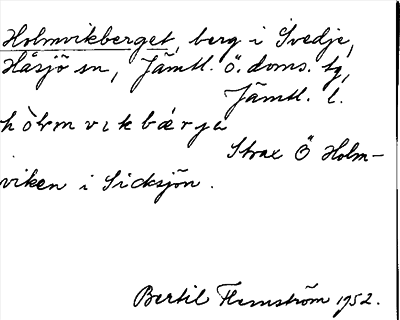 Holmvikberget, berg i Svedje,
Håsjö sn, Jämtl. ö. doms. tg,
Jämtl. l.
Strax Ö Holm-
viken i Sicksjön.
Bertil Flemström 1952.